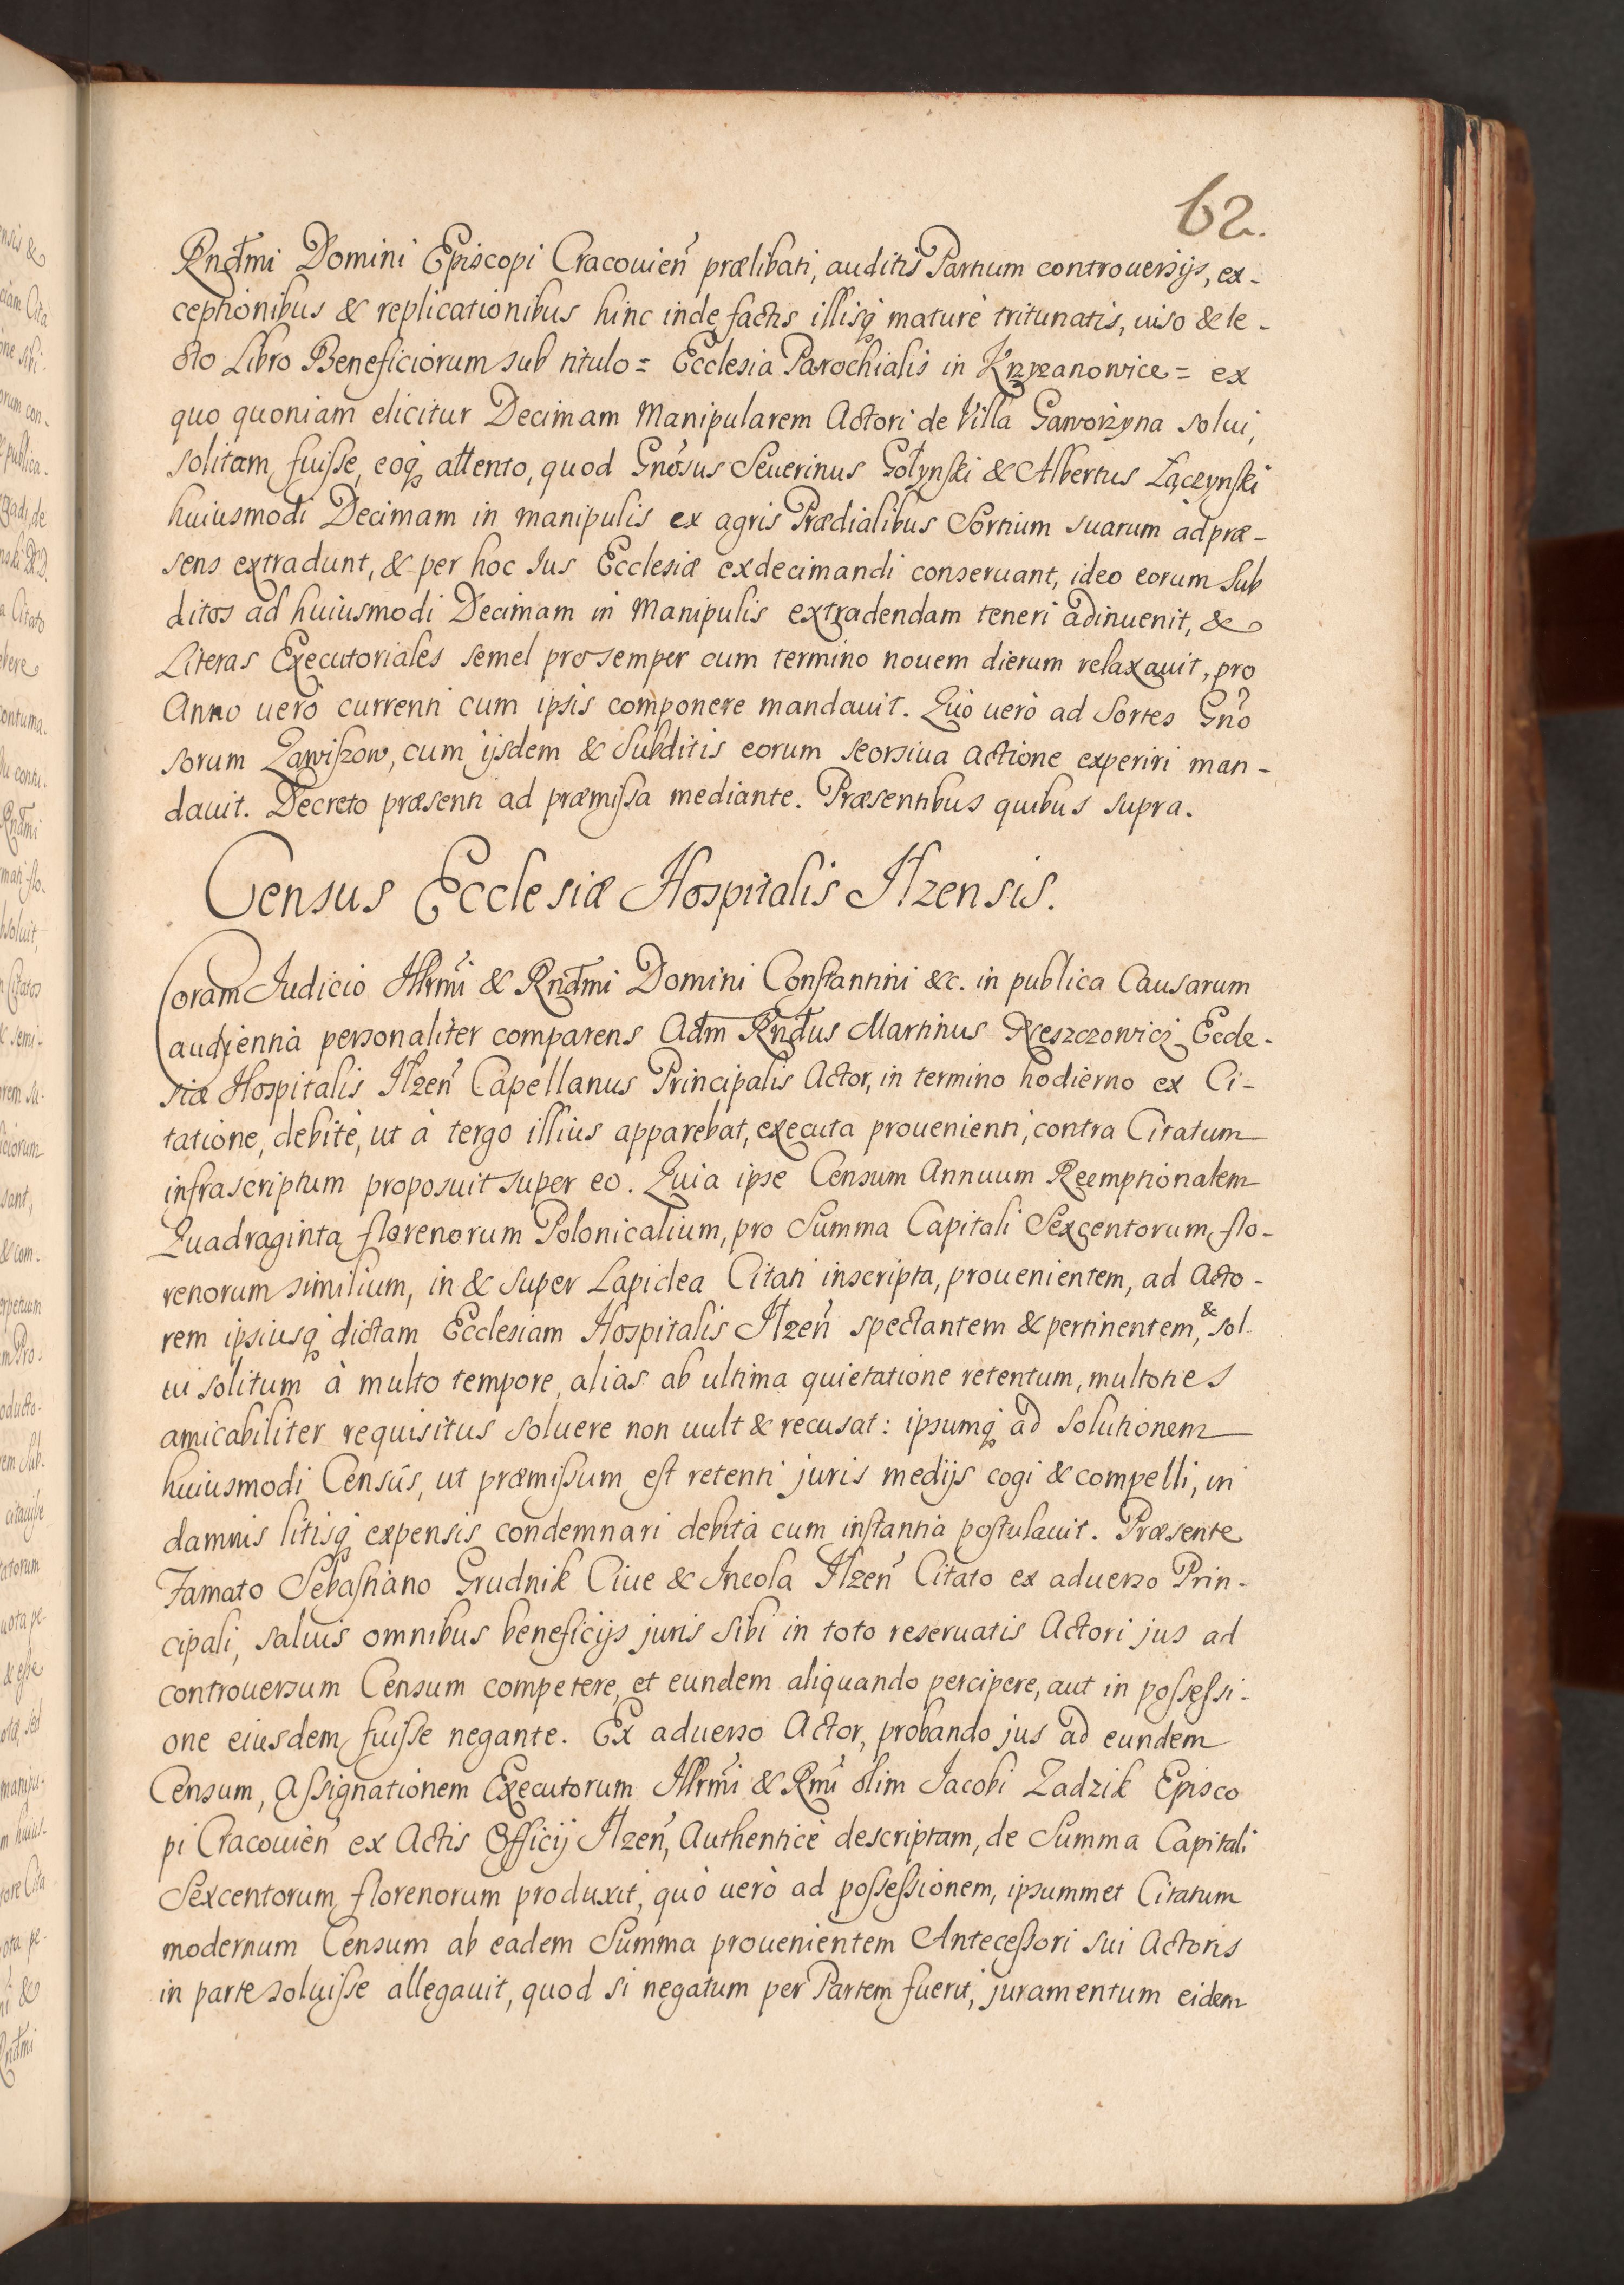 62.
Rndmi Domini Episcopi Cracouien prælibati, auditis Partium controuersijs, ex-
ceptionibus & replicationibus hinc inde factis illisq mature tritunatis, uiso & le-
cto Libro Beneficiorum sub titulo = Ecclesia Parochialis in Krzyzanowice = ex
quo quoniam elicitur Decimam Manipularem Actori de Villa Gaworzyna solui,
solitam fuisse, eoq attento, quod Gnosus Seuerinus Gołynski & Albertus Łączynski
huiusmodi Decimam in manipulis ex agris Prædialibus Sortium suarum ad præ-
sens extradunt, & per hoc Ius Ecclesiæ exdecimandi conseruant, ideo eorum Sub
ditos ad huiusmodi Decimam in Manipulis extradendam teneri adinuenit, &
Literas Executoriales semel pro semper cum termino nouem dierum relaxauit, pro
Anno uerò currenti cum ipsis componere mandauit. Quò uerò ad Sortes Gno
sorum Zawiszow, cum ijsdem & Subditis eorum seorsiua actione experiri man-
dauit. Decreto præsenti ad præmissa mediante. Præsentibus quibus supra.
Census Ecclesiæ Hospitalis Ilzensis.
Coram Iudicio Illrmi & Rndmi Domini Constantini &c. in publica Causarum
audjentia personaliter comparens Adm Rndus Martinus Reszczowicz Eccle-
siæ Hospitalis Ilzen Capellanus Principalis Actor, in termino hodierno ex Ci-
tatione, debitè, ut à tergo illius apparebat, executa prouenienti, contra Citatum
infrascriptum proposuit super eo. Quia ipse Censum Annuum Reemptionalem
Quadraginta florenorum Polonicalium, pro Summa Capitali Sexcentorum flo-
renorum similium, in & super Lapidea Citati inscripta, prouenientem, ad Acto-
rem ipsiusq dictam Ecclesiam Hospitalis Ilzen spectantem & pertinentem, & sol
ui solitum à multo tempore, alias ab ultima quietatione retentum, multoties
amicabiliter requisitus soluere non uult & recusat: ipsumq ad solutionem
huiusmodi Censûs, ut præmissum est retenti juris medijs cogi & compelli, in
damnis litisq expensis condemnari debita cum instantia postulauit. Præsente
Famato Sebastiano Grudnik Ciue & Incola Ilzen Citato ex aduerso Prin-
cipali, saluis omnibus beneficijs juris sibi in toto reseruatis Actori jus ad
controuersum Censum competere, et eundem aliquando percipere, aut in possessi-
one eiusdem fuisse negante. Ex aduerso Actor, probando jus ad eundem
Censum, Assignationem Executorum Illrmi & Rmi olim Jacobi Zadzik Episco
pi Cracouien ex Actis Officij Ilzen, Authenticè descriptam, de Summa Capitali
Sexcentorum florenorum produxit, quò uerò ad possessionem, ipsummet Citatum
modernum Censum ab eadem Summa prouenientem Antecessori sui Actoris
in parte soluisse allegauit, quod si negatum per Partem fuerit, juramentum eidem